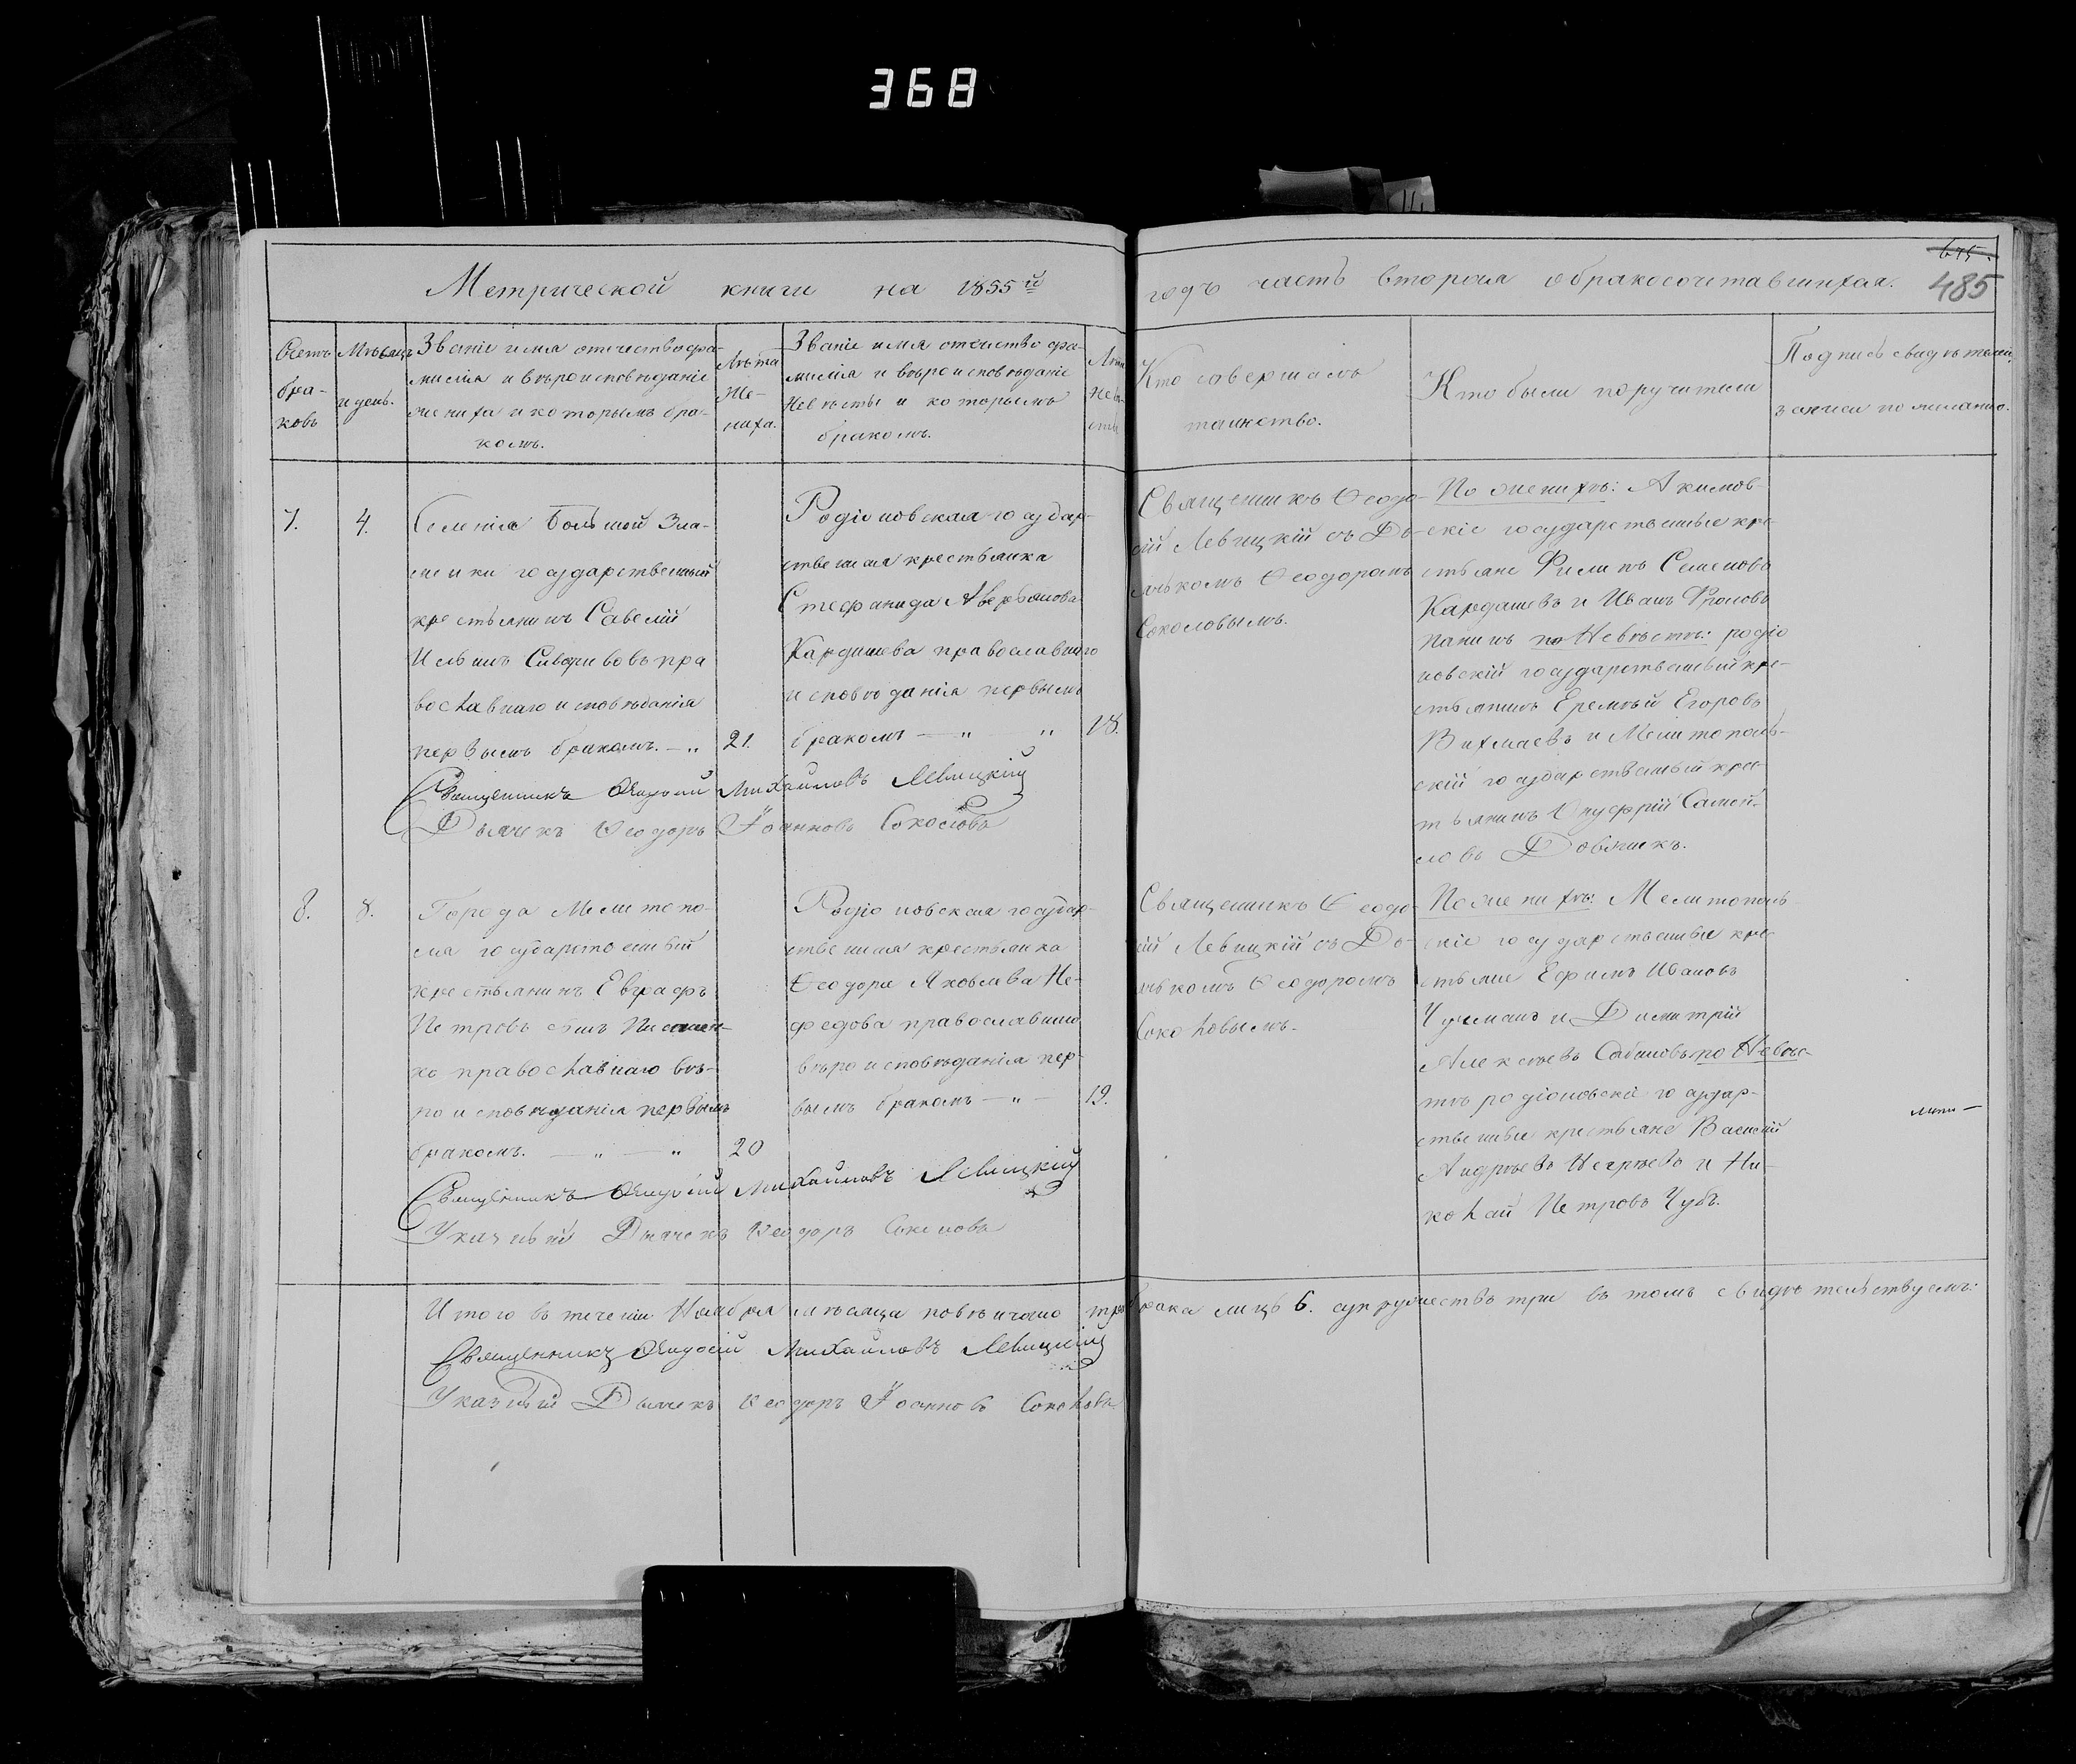 368
Метрической книги на 1855й
годъ часть вторая о бракосочитавшихся.
675.
485
Счетъ
бра-
ковъ
Мѣсяцъ
и день.
Званіе имя отечество фа-
милія и вѣроисповѣданіе
жениха и которымъ бра-
комъ.
Лѣта
Же-
ниха.
Званіе имя отечиство фа-
милія и вѣроисповѣданіе
Невѣсты и которымъ
бракомъ.
Лѣта
Невѣ-
сты
Кто совершалъ
таинство.
Кто были поручители
Подпись свидѣтелей
записи по желанію.
7.
4.
Селенія Большой Зна-
менки государственный
крестьянинъ Савелій
Ильинъ пра
вославнаго исповѣданія
первымъ бракомъ. — „
21.
Родіоновская государ-
ственная крестьянка
Стефанида Аверьянова
Кардашева православнаго
исповѣданія первымъ
бракомъ — „ — „
18.
Священникъ Ѳеодо-
сій Левицкій съ Дь-
ячкомъ Ѳеодоромъ
Соколовымъ.
По женихѣ: Акимов-
скіе государственные кре-
стьяне Филипъ Семеновъ
Кардашевъ и Иванъ Фроловъ
Панинъ по Невѣстѣ: родіо
новскій государственный кре-
стьянинъ Еремѣй Егоровъ
Вихлаевъ и Мелитополь-
скій государственный крес-
тьянинъ Онуфрій Самой-
ловъ
Священникъ Ѳеодосій Михайловъ Левицкій
Дьячекъ Ѳеодоръ Іоанновъ Соколовъ
8.
8.
Города Мелитопо-
ля государственный
крестьянинъ Евграфъ
Петровъ сынъ
ко православнаго вѣ-
роисповѣданія первымъ
бракомъ. — „ — „
20
Родіоновская государ-
ственная крестьянка
Ѳеодора Яковлева Не-
федова православнаго
вѣроисповѣданія пер-
вымъ бракомъ — „ —
19.
Священникъ Ѳеодо-
сій Левицкій съ Дь-
ячкомъ Ѳеодоромъ
Соколовымъ.
По женихѣ: Мелитополь-
скіе государственные кре
стьяне Ефимъ Ивановъ
и Димитрій
Алексѣевъ по Невѣс-
тѣ родіоновскіе государ-
ственные крестьяне Василій
Андрѣевъ и Ни-
колай Петровъ Чубъ.
Священникъ Ѳеодосій Михайловъ Левицкій
Указный Дьячекъ Ѳеодоръ Соколовъ
Итого въ теченіи Ноября мѣсяца повѣнчано три брака лицъ 6. супружествъ три въ томъ свидѣтельствуемъ:
Священникъ Ѳеодосій Михайловъ Левицкій
Указный Дьячекъ Ѳеодоръ Іоанновъ Соколовъ